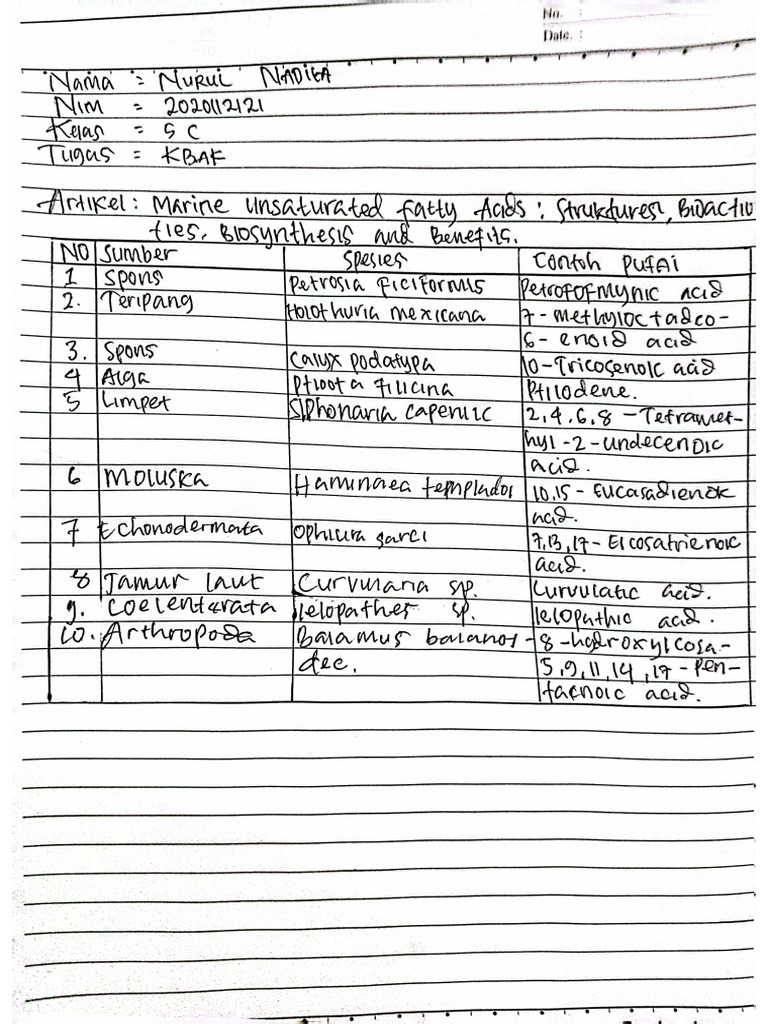 No. :
Date. :
Nama = Nurul Nadita
Nim = 2020112121
Kelas = 5 C
Tugas = KBAF
Artikel: Marine Unsaturated Fatty Acids : Strukturesi, Bioactiv
ties, Biosynthesis and Benefits.
NO Sumber Spesies Contoh PUFAI
1 Spons Petrosia ficiformis Petrofofmynic acid
2. Teripang Holothuria mexicana 7-methyloctadco-
6-enoid acid
3. Spons Calyx podatypa 10-Tricosenoic acid
4 Alga Ptiloota filicina Ptilodene.
5 Limpet Siphonaria capenlic 2,4,6,8-Tetramet-
hyl-2-undecenoic
acid.
6 Moluska Haminaea templadoi 10,15-Eucasadienok
acid.
7 Echonodermata Ophiura sarci 7,13,17-Eicosatrienoic
acid.
8 Jamur laut Curvularia sp. Curvulatic acid.
9. Coelenterata leiopathes sp. leiopathic acid.
10. Arthropoda Balamus balanoi- 8-hydroxylcosa-
dec. 5,9,11,14,17-pen-
taenoic acid.